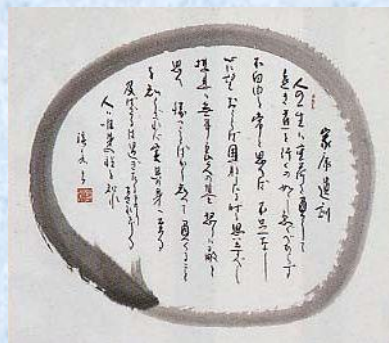 家康遺訓
人の一生は重荷を負うて
遠き道を行くが如し急ぐべからず
不自由を常と思へば不足なし
心に望おこらば困窮したる時を思い出すべし
堪忍は無事長久の基怒りは敵と
思へ勝つことばかり知りて負くること
を知らざれば害其の身に至る
及ばざるは過ぎたるよりまされり
人は唯身の程を知れ